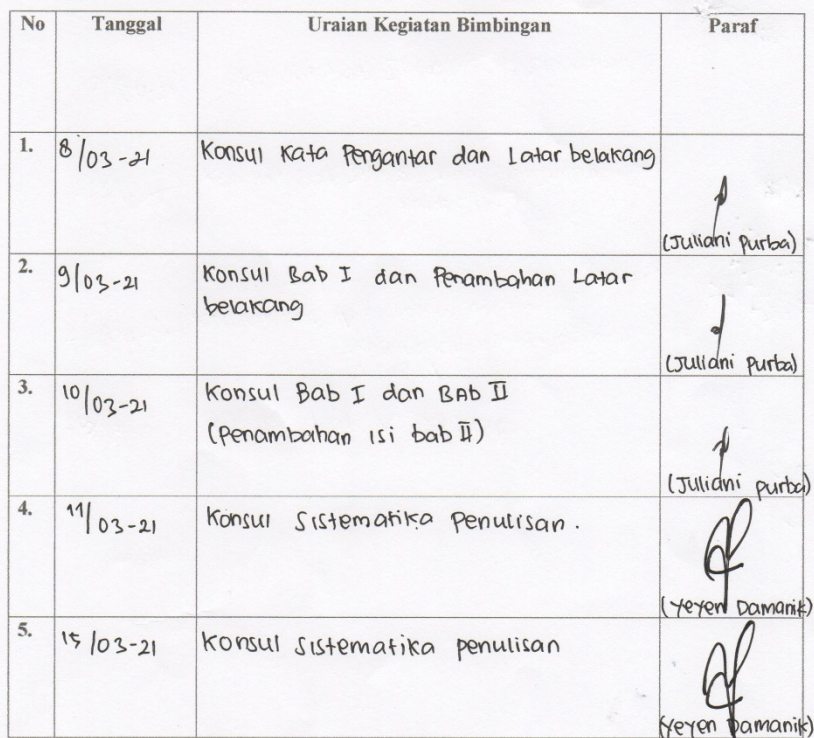 No Tanggal Uraian Kegiatan Bimbingan Paraf
1. 8/03-21 Konsul Kata Pengantar dan Latar belakang
(Juliani Purba)
2. 9/03-21 Konsul Bab I dan Penambahan Latar
belakang
(Juliani Purba)
3. 10/03-21 Konsul Bab I dan BAb II
(Penambahan isi bab II)
(Juliani Purba)
4. 11/03-21 Konsul Sistematika Penulisan.
(Yeyen Damanik)
5. 15/03-21 Konsul Sistematika penulisan
(Yeyen Damanik)